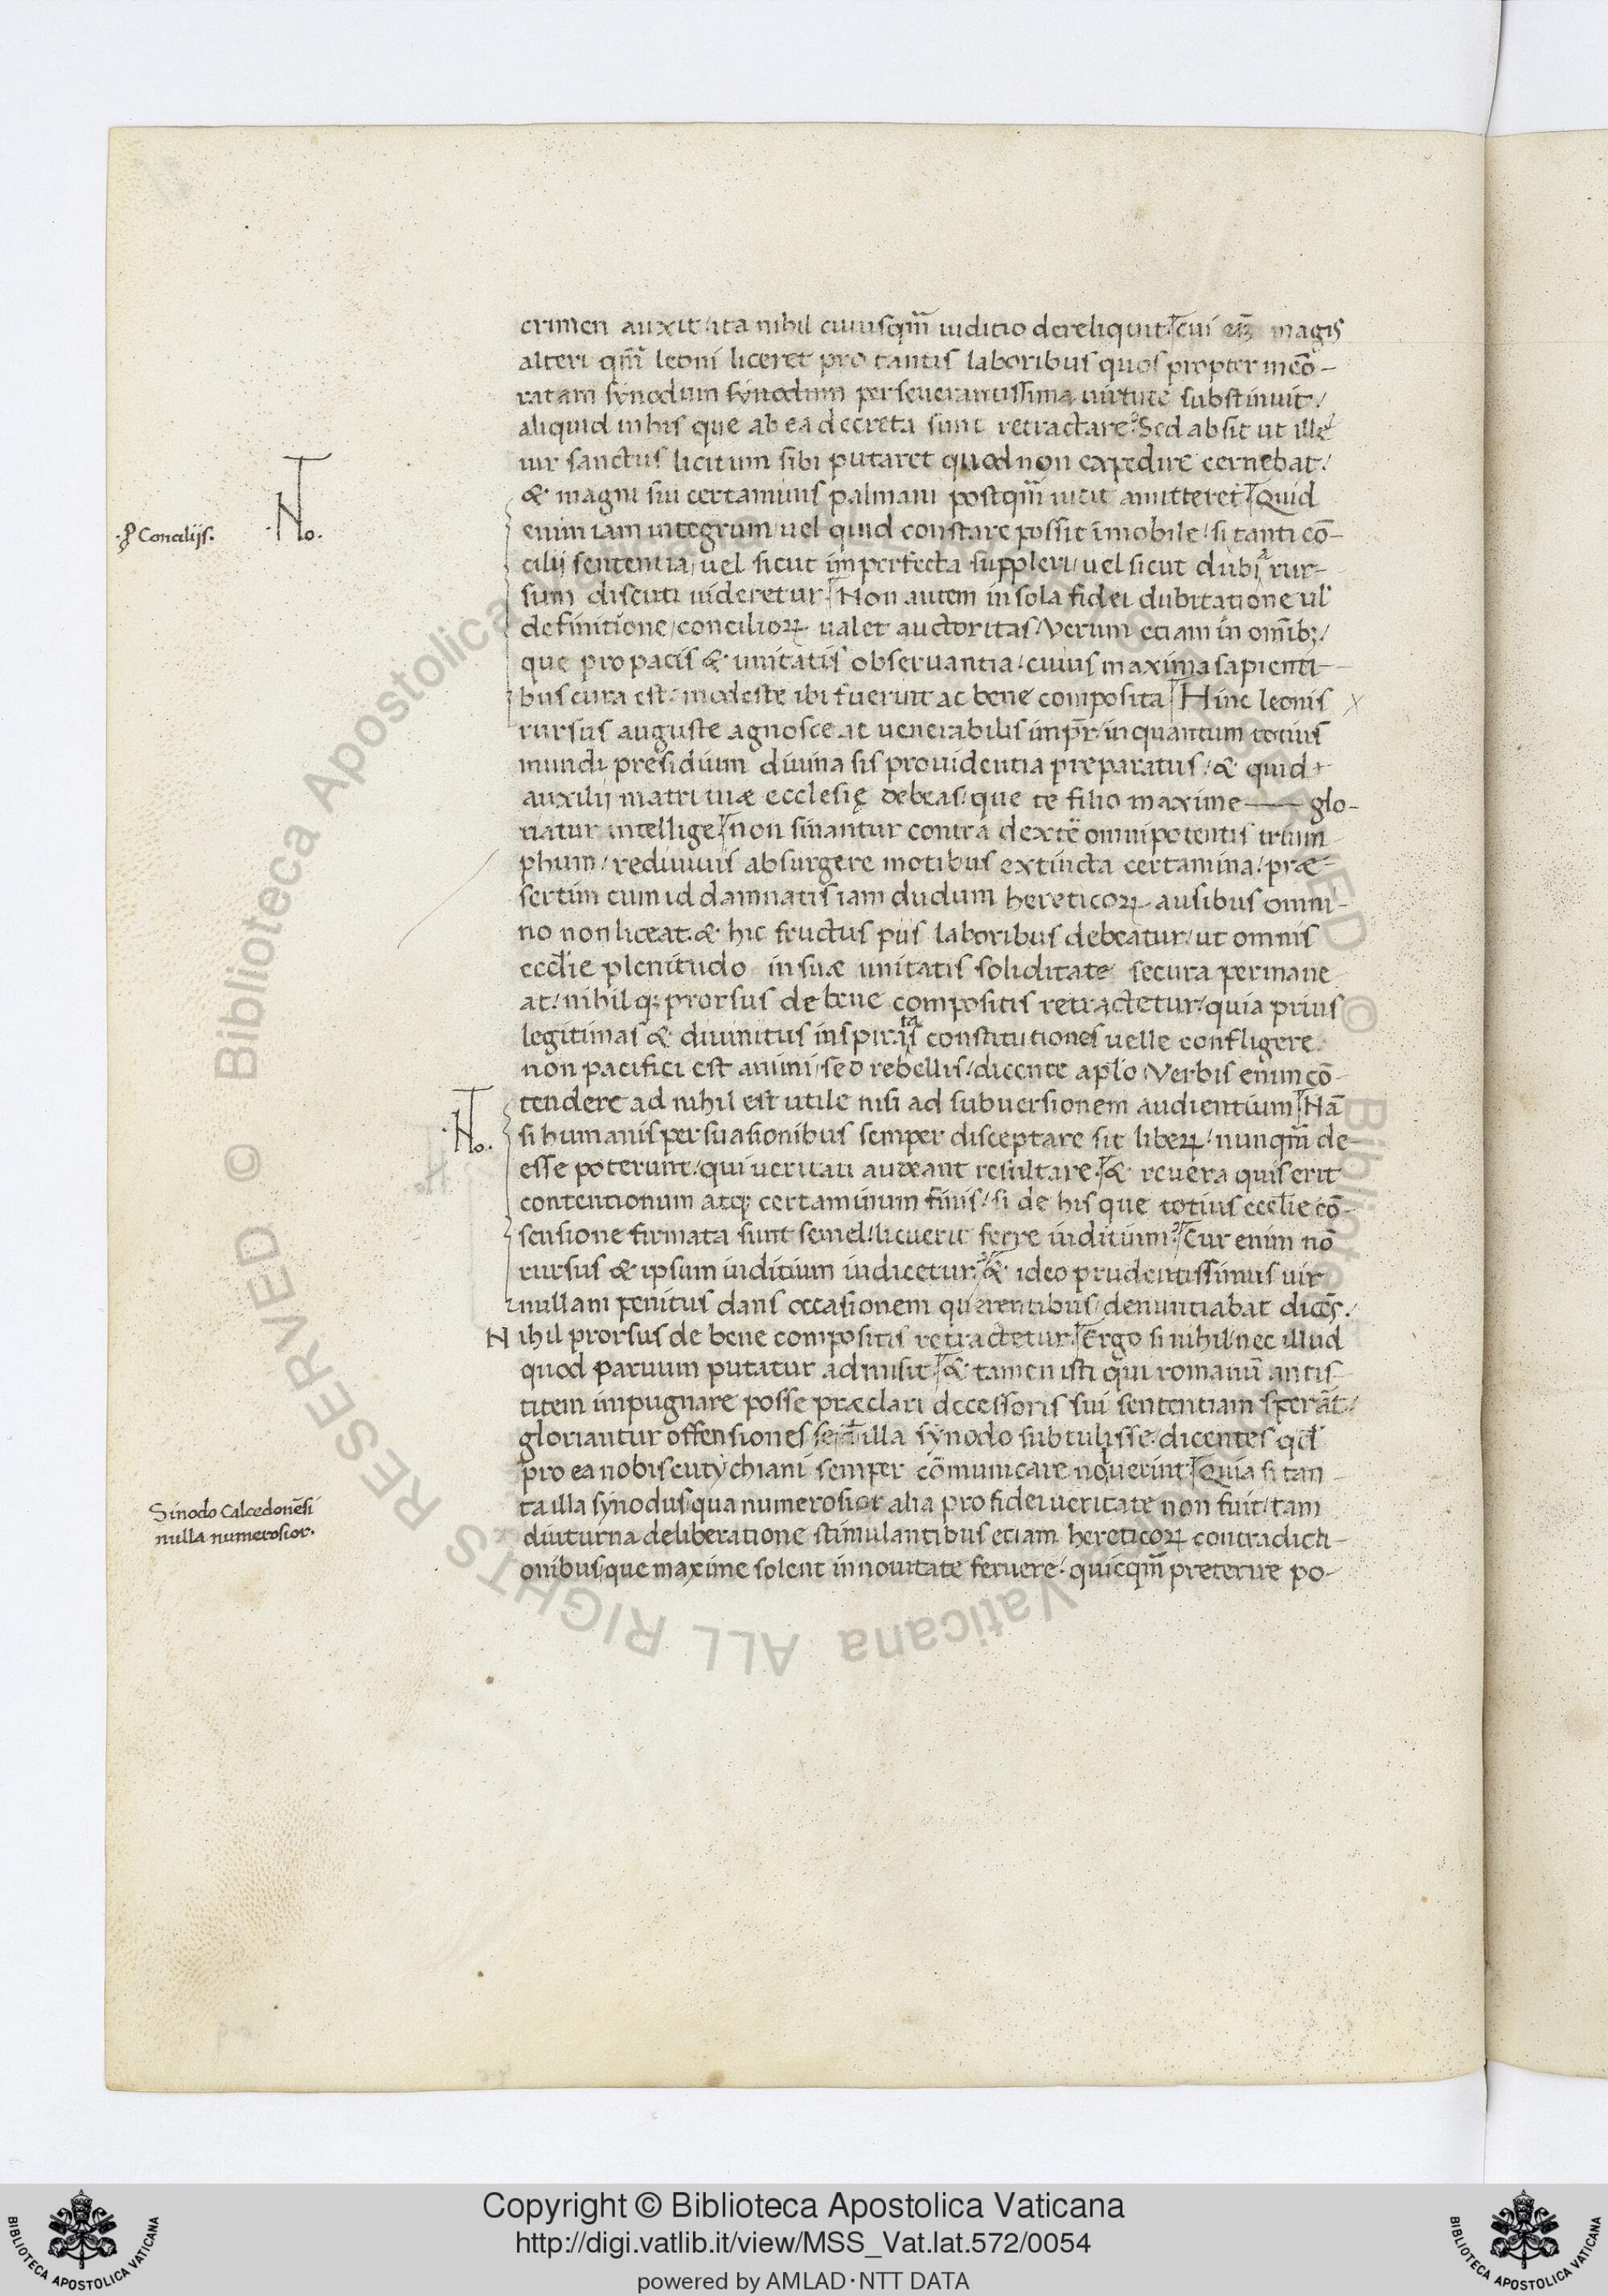 crimen auxit / ita nihil cuiusqm̃ iuditio dereliquit Cui magis
alteri qm̃ leoni liceret pro tantis laboribus quos propter mẽo-
ratam sẏnodum sẏnodum perseuerantissima uirtute substinuit /
aliquid in his que ab ea decreta sunt retractare? Sed absit ut ille
uir sanctus licitum sibi putaret quod non expedire cernebat /
& magni sui certaminis palmam postqm̃ uicit amitteret Quid
enim iam integrum / uel quid constare possit ĩmobile / si tanti cõ-
cilij sententia / uel sicut imperfecta suppleri / uel sicut dubia rur-
sum discuti uideretur Non autem in sola fidei dubitatione ul̃
definitione / conciliorꝝ ualet auctoritas / Verum etiam in om̃ibꝫ /
que pro pacis & unitatis obseruantia / cuius maxima sapienti-
bus cura est / modeste ibi fuerint ac bene composita Hinc leonis
rursus auguste agnosce at uenerabilis imp̃r / in quantum totius
mundi presidium diuina sis prouidentia preparatus / & quid
auxilij matri tuæ ecclesię debeas / que te filio maxime —— glo-
riatur intellige non sinantur contra dextẽ omnipotentis trium
phum / rediuiuis absurgere motibus extincta certamina / præ-
sertim cum id damnatis iam dudum hereticorꝝ ausibus omni-
no non liceat. & hic fructus piis laboribus debeatur / ut omnis
eccl̃ie plenitudo in suæ unitatis soliditate secura permane
at / nihil qꝫ prorsus de bene compositis retractetur / quia prius
legitimas & diuinitus inspiratas constitutiones uelle confligere
non pacifici est animi / sed rebellis / dicente apl̃o Verbis enim cõ-
tendere ad nihil est utile nisi ad subuersionem audientium Nã
si humanis persuasionibus semper disceptare sit liberꝝ / nunqm̃ de-
esse poterunt / qui ueritati audeant resultare & reuera quis erit
contentionum atqꝫ certaminum finis / si de his que totius eccl̃ie cõ-
sensione firmata sunt semel / licuerit ferre iuditium? Cur enim nõ
rursus & ipsum iuditium iudicetur? & ideo prudentissimus uir
nullam penitus dans occasionem querentibus / denuntiabat dicẽs.
Nihil prorsus de bene compositis retractetur Ergo si nihil / nec illud
quod paruum putatur admisit & tamen isti qui romanũ antis-
titem impugnare posse præclari decessoris sui sententiam sperãt /
gloriantur offensiones illa sẏnodo subtulisse / dicentes qd̃
pro ea nobis eutẏchiani semper cõmunicare noluerint Quia si tan-
ta illa sẏnodus qua numerosior alia pro fidei ueritate non fuit / tam
diuturna deliberatione stimulantibus etiam hereticorꝝ contradicti-
onibus / que maxime solent in nouitate feruere / quicqm̃ preterire po-
No.
Concilijs.
No.
Sinodo Calcedonẽsi
nulla numerosior.
© Biblioteca Apostolica Vaticana ALL RIGHTS RESERVED
Copyright © Biblioteca Apostolica Vaticana
http://digi.vatlib.it/view/MSS_Vat.lat.572/0054
powered by AMLAD·NTT DATA
BIBLIOTECA APOSTOLICA VATICANA
BIBLIOTECA APOSTOLICA VATICANA